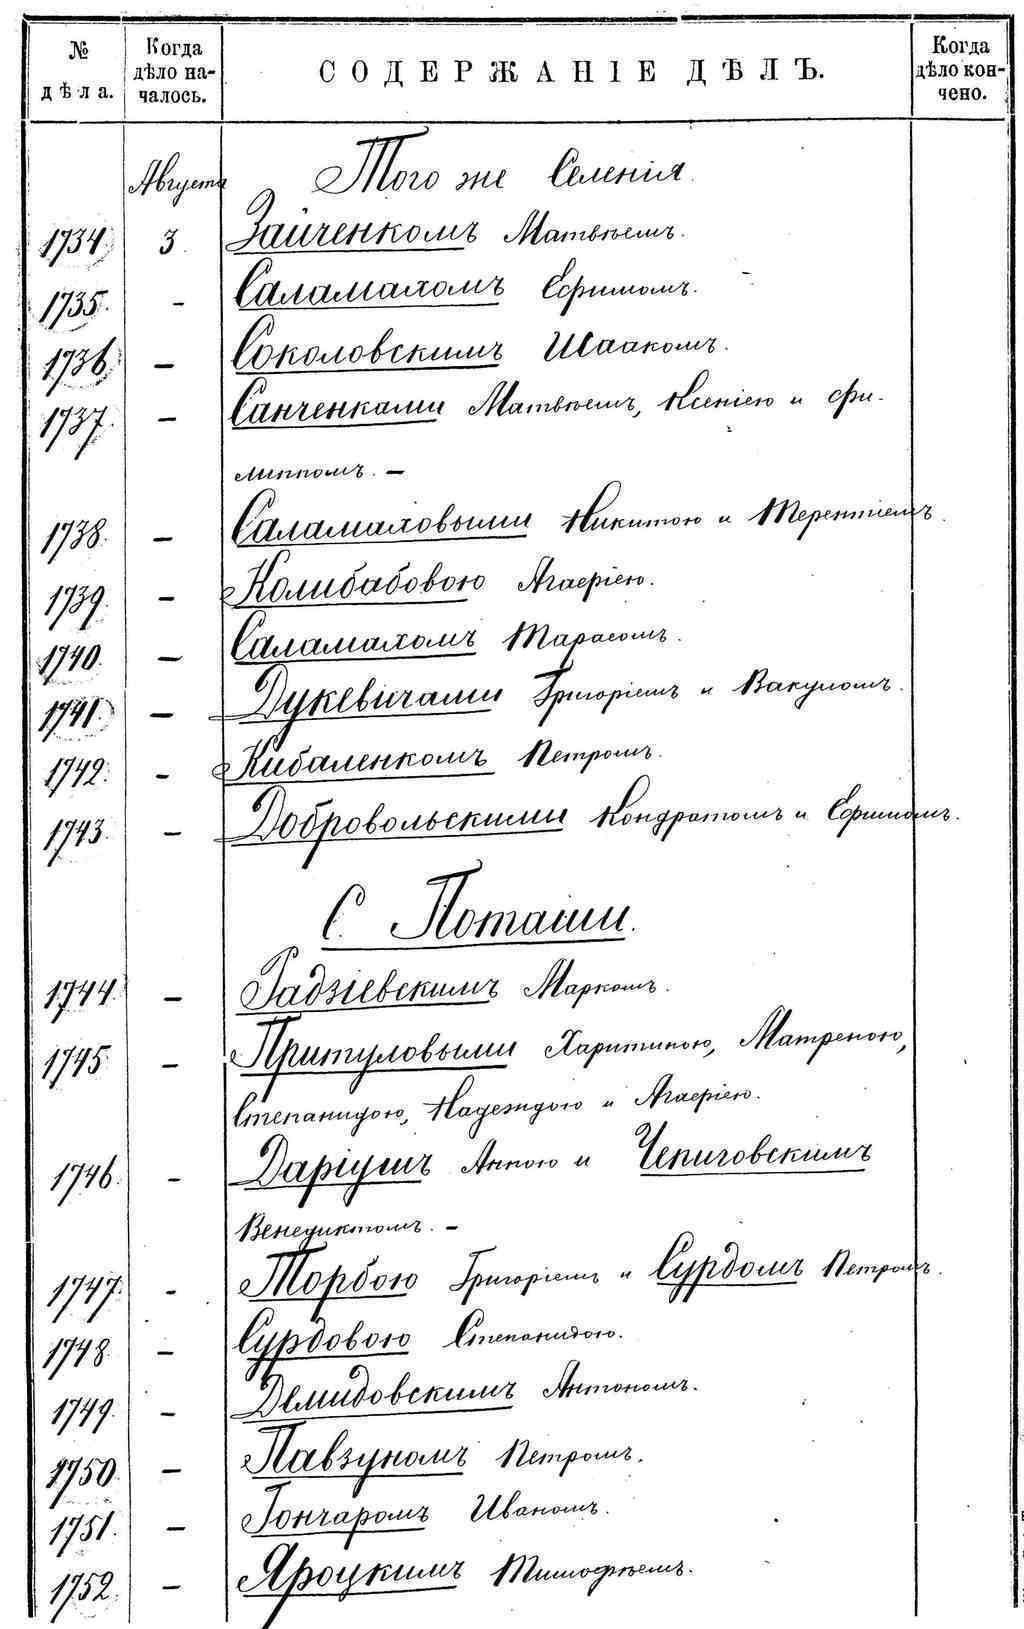 № дѣла.
Когда дѣло началось.
СОДЕРЖАНІЕ ДѢЛЪ.
Когда дѣло кончено.
Августа Того же Селенія.
1734. 3. Зайченкомъ Матвѣемъ.
1735. - Саламахомъ Ефимомъ.
1736. - Соколовскимъ Исаакомъ.
1737. - Санченками Матвѣемъ, Ксеніею и Фи-
липпомъ. -
1738. - Саламаховыми Никитою и Терентіемъ.
1739. - Колибабовою Агафіею.
1740. - Саламахомъ Тарасомъ.
1741. - Дукевичами Григоріемъ и Вакуломъ.
1742. - Кибаленкомъ Петромъ.
1743. - Добровольскими Кондратомъ и Ефимомъ.
С. Поташи.
1744. - Радзіевскимъ Маркомъ.
1745. - Притуловыми Харитиною, Матреною,
Степанидою, Надеждою и Агафіею.
1746. - Даріушъ Анною и Чепиговскимъ
Венедиктомъ. -
1747. - Торбою Григоріемъ и Сурдомъ Петромъ.
1748. - Сурдовою Степанидою.
1749. - Демидовскимъ Антономъ.
1750. - Павзуномъ Петромъ.
1751. - Гончаромъ Иваномъ.
1752. - Яроцкимъ Тимофѣемъ.